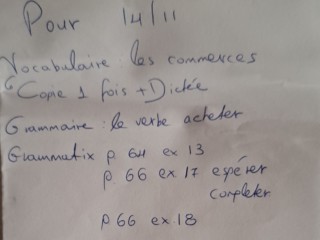 Pour 14/11
Vocabulaire : les commerces
Copie 1 fois + Dictée
Grammaire : le verbe acheter
Grammatix p. 64 ex 13
p. 66 ex 17 espérer
completer
p 66 ex 18